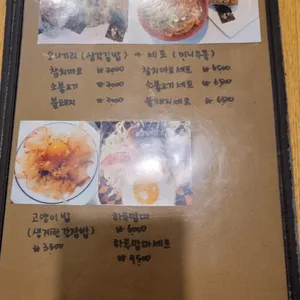 오니기리 (삼각김밥) → 세트 (미니우동)
참치마요 ₩3000 참치마요세트 ₩6500
소불고기 ₩3000 소불고기세트 ₩6500
불돼지 ₩3000 불돼지세트 ₩6500
고양이밥 하루맘마
(생계란간장밥) ₩6000
₩3500 하루맘마세트
₩9500